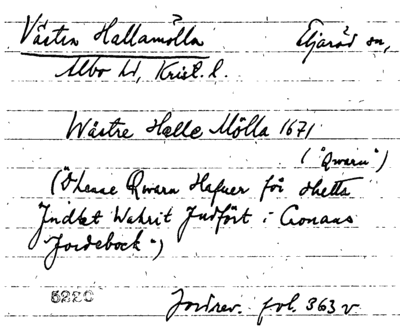 Västra Hallamölla Eljaröd sn,
Albo hd, Krist. l.
Wästre Halle Mölla 1671
("Qwarn")
("Dhenne Qwarn Hafuer för dhetta
Indtet Wahrit Indfört i Cronans
Jordebock")
5220
Jordrev. fol. 363 v